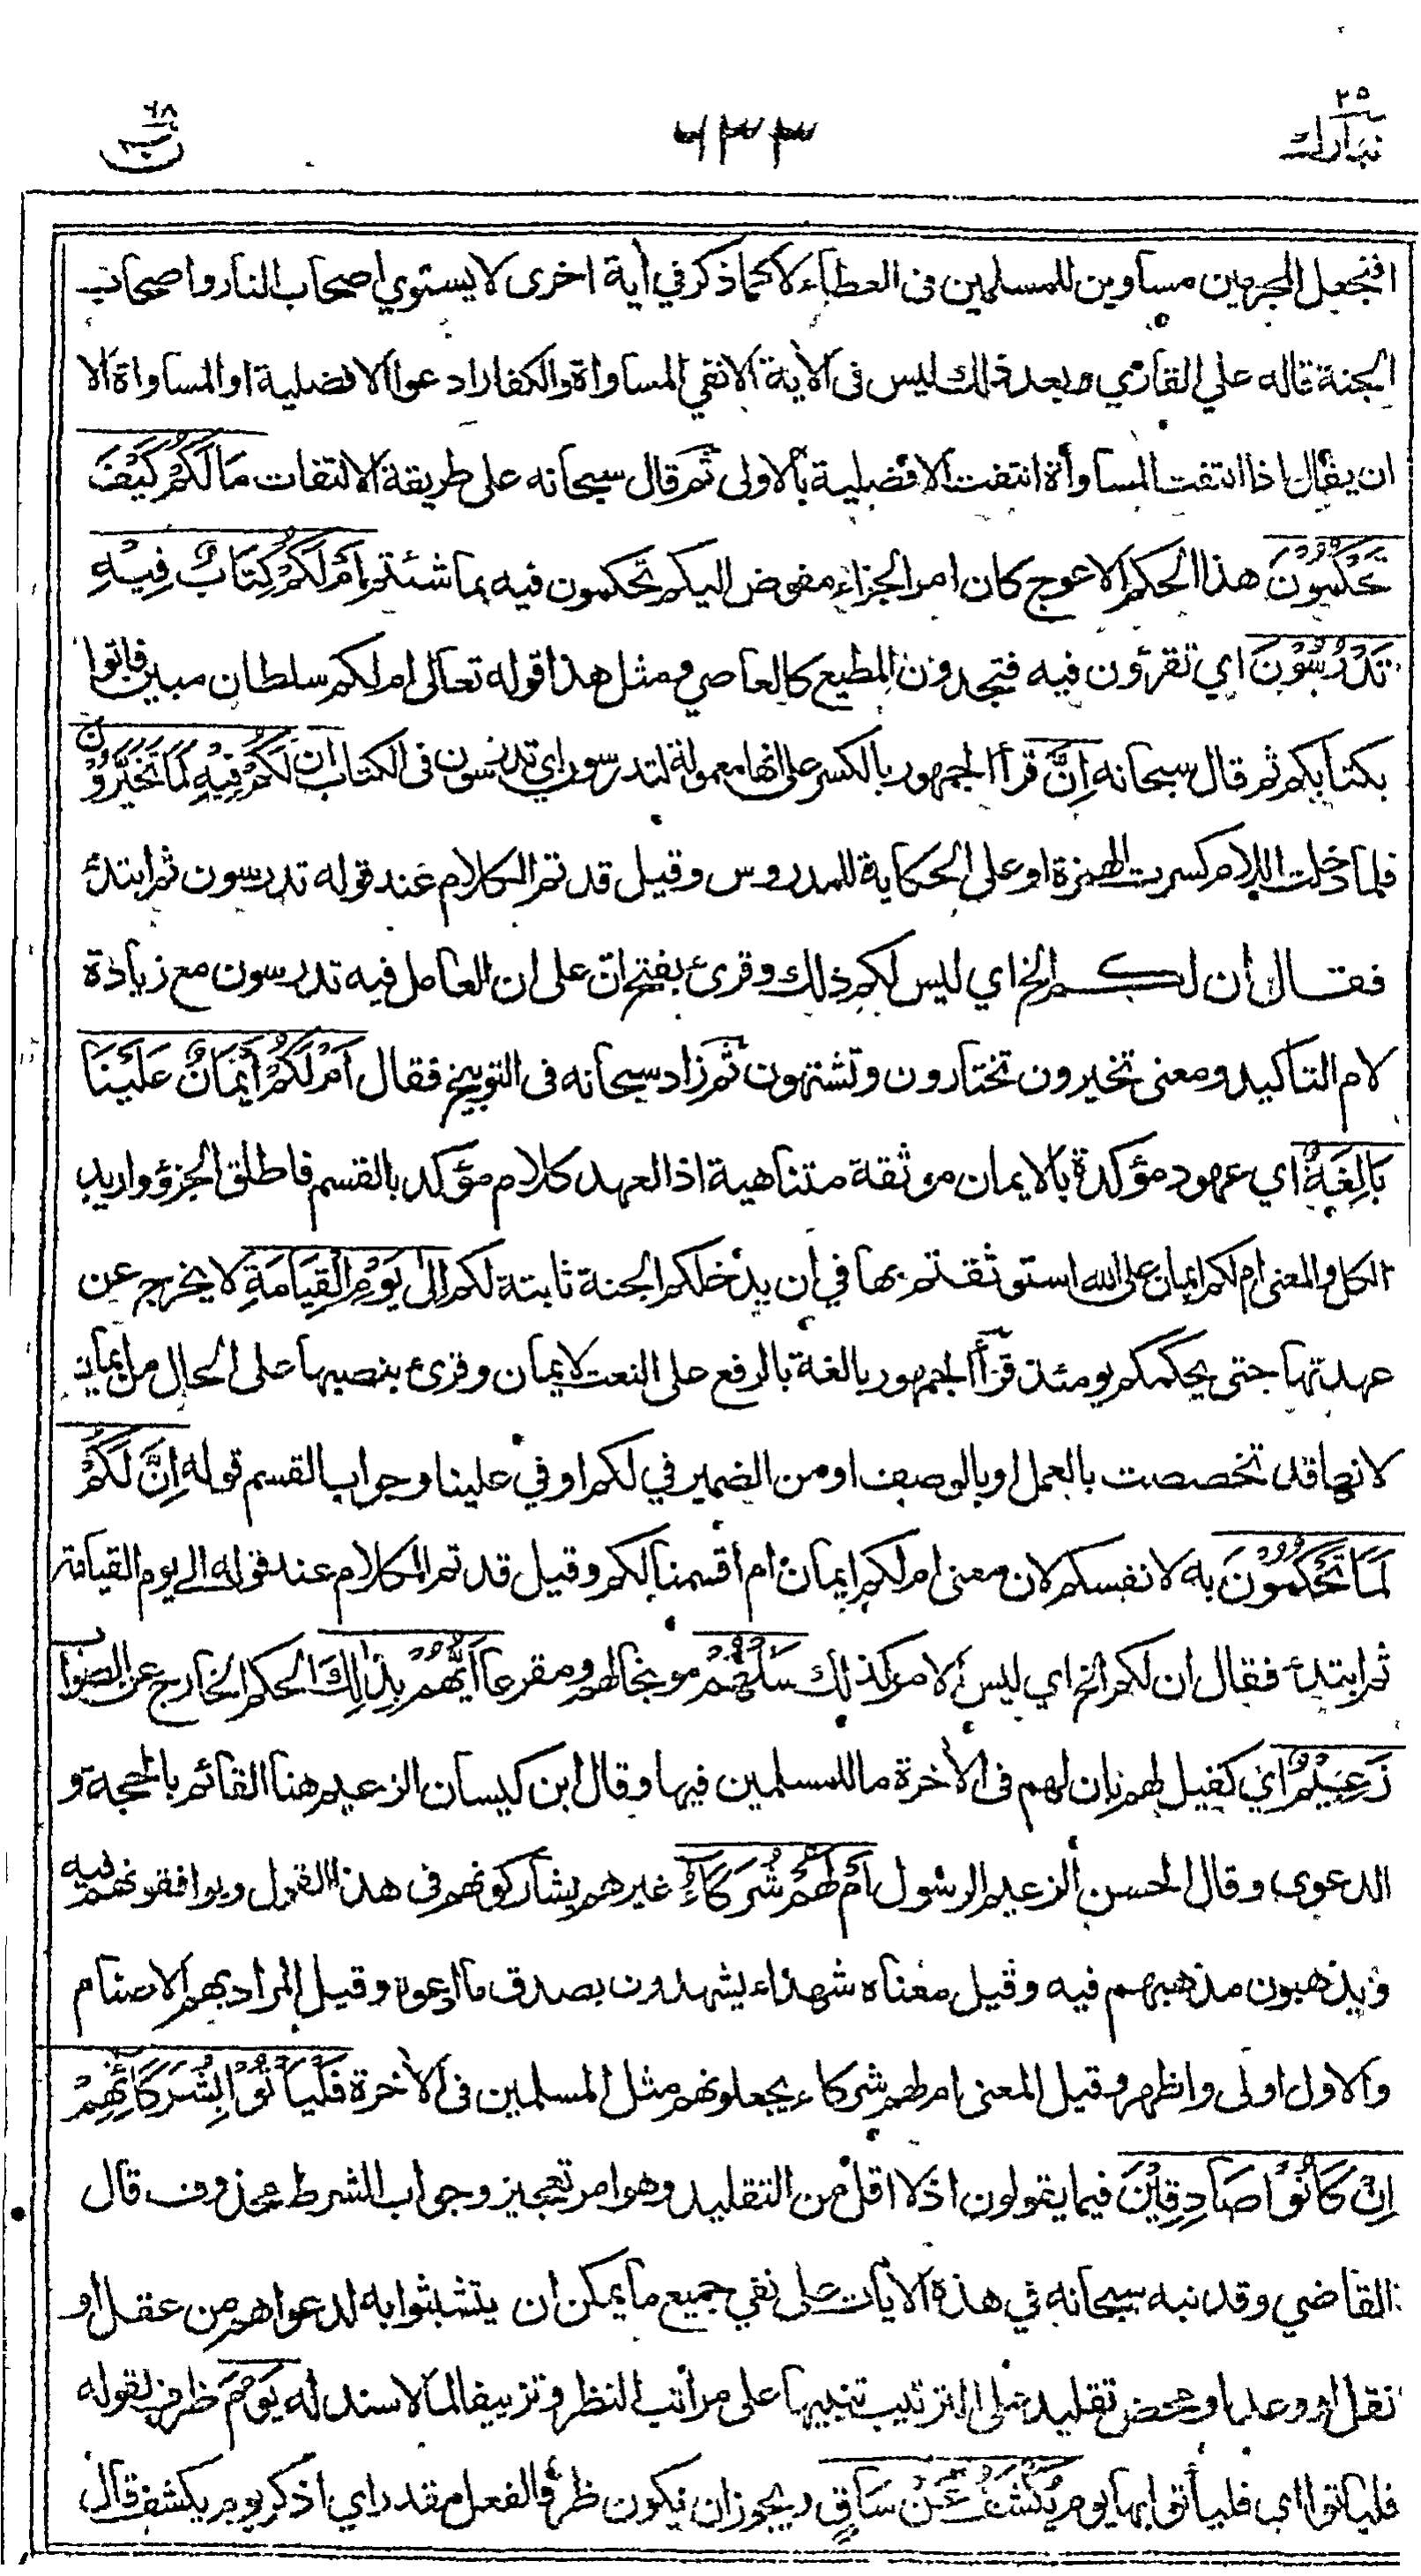 ٢٩ تبارك
٦٣٣
٦٨ ن
افنجعل المجرمين مساوين للمسلمين فى العطاء لا كما ذكر في أية اخرى لا يستوي اصحاب النار واصحاب
الجنة قاله علي القاري وبعد ذلك ليس فى الأية الا نفي المساواة والكفار ادعوا الافضلية او المساواة الا
ان يقال اذا انتفت المساواة انتفت الافضلية بالاولى ثم قال سبحانه على طريقة الالتفات مَا لَكُمْ كَيْفَ
تَحْكُمُوْنَ هذا الحكم الاعوج كان امر الجزاء مفوض اليكم تحكمون فيه بما شئتم اَمْ لَكُمْ كِتَابٌ فِيْهِ
تَدْرُسُوْنَ اي تقرؤن فيه فتجدون المطيع كالعاصي ومثل هذا قوله تعالى ام لكم سلطان مبين فاتوا
بكتابكم ثم قال سبحانه اِنَّ قرأ الجمهور بالكسر على انها معمولة لتدرسون اي تدرسون فى الكتاب ان لَكُمْ فِيْهِ لَمَا تَخَيَّرُوْنَ
فلما دخلت اللام كسرت الهمزة او على الحكاية للمدروس وقيل قد تم الكلام عند قوله تدرسون ثم ابتدئ
فقال ان لكم الخ اي ليس لكم ذلك وقرئ بفتح ان على ان العامل فيه تدرسون مع زيادة
لام التاكيد ومعنى تخيرون تختارون وتشتهون ثم زاد سبحانه فى التوبيخ فقال اَمْ لَكُمْ اَيْمَانٌ عَلَيْنَا
بَالِغَةٌ اي عهود مؤكدة بالايمان موثقة متناهية اذ العهد كلام مؤكد بالقسم فاطلق الجزؤ واريد
الكل والمعنى ام لكم ايمان على الله استوثقتم بها في ان يدخلكم الجنة ثابتة لكم اِلٰى يَوْمِ الْقِيَامَةِ لا يخرج عن
عهدتها حتى يحكمكم يومئذ قرأ الجمهور بالغة بالرفع على النعت لايمان وقرئ بنصبها على الحال من ايمان
لانها قد تخصصت بالعمل او بالوصف او من الضمير في لكم او في علينا وجواب القسم قوله اِنَّ لَكُمْ
لَمَا تَحْكُمُوْنَ به لانفسكم لان معنى ام لكم ايمان ام اقسمنا لكم وقيل قد تم الكلام عند قوله الى يوم القيامة
ثم ابتدئ فقال ان لكم الخ اي ليس الامر كذلك سَلْهُمْ موبخا لهم ومقرعا اَيُّهُمْ بِذٰلِكَ الحكم الخارج عن الصواب
زَعِيْمٌ اي كفيل لهم بان لهم فى الأخرة ما للمسلمين فيها وقال ابن كيسان الزعيم هنا القائم بالحجة و
الدعوى وقال الحسن الزعيم الرسول اَمْ لَهُمْ شُرَكَاءُ غيرهم يشاركونهم فى هذا القول ويوافقونهم فيه
ويذهبون مذهبهم فيه وقيل معناه شهداء يشهدون بصدق ما ادعوه وقيل المراد بهم الاصنام
والاول اولى واظهر وقيل المعنى ام لهم شركاء يجعلونهم مثل المسلمين فى الأخرة فَلْيَاْتُوْا بِشُرَكَائِهِمْ
اِنْ كَانُوْا صَادِقِيْنَ فيما يقولون اذ لا اقل من التقليد وهو امر تعجيز وجواب الشرط محذوف قال
القاضي وقد نبه سبحانه في هذه الأيات على نفي جميع ما يمكن ان يتشبثوا به لدعواهم من عقل او
نقل او وعد او محض تقليد على الترتيب تنبيها على مراتب النظر وتزييفا لما لا سند له يَوْمَ ظرف لقوله
فلياتوا اي فليأتوا بها يوم يُكْشَفُ عَنْ سَاقٍ ويجوز ان يكون ظرفا لفعل مقدر اي اذكر يوم يكشف قال